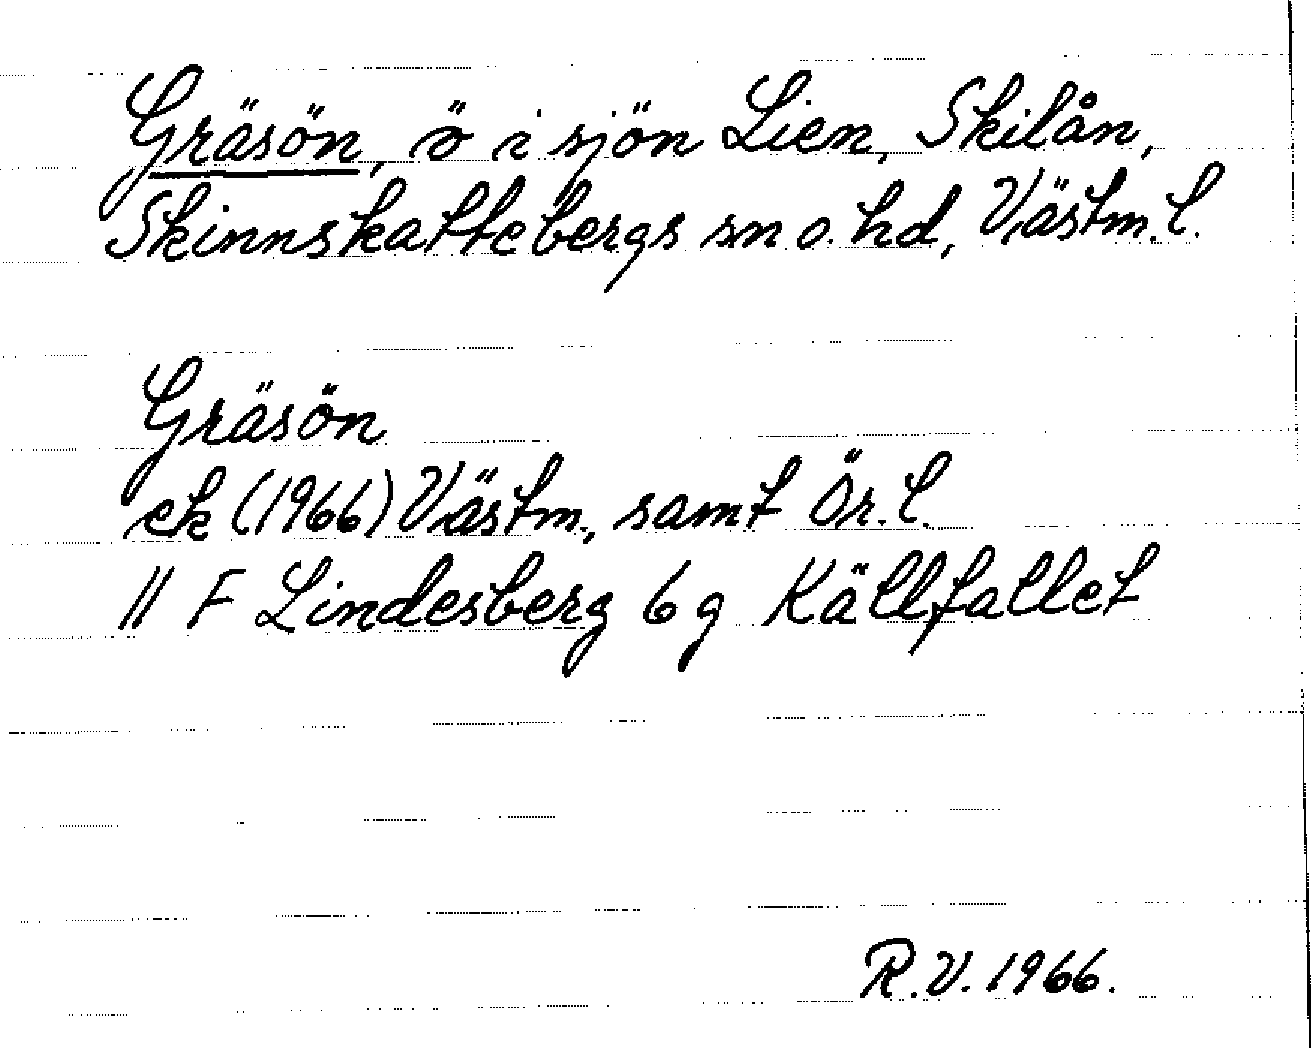 Gräsön, ö i sjön Lien, Skilån,
Skinnskattebergs sn o. hd, Västm. l.
Gräsön
ek (1966) Västm., samt Ör. l.
11 F Lindesberg 6 g Källfallet
R.V. 1966.